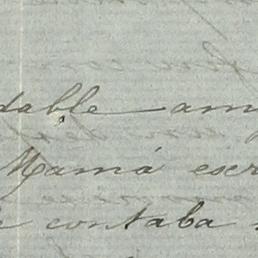 dable am
Mamá escr
contaba